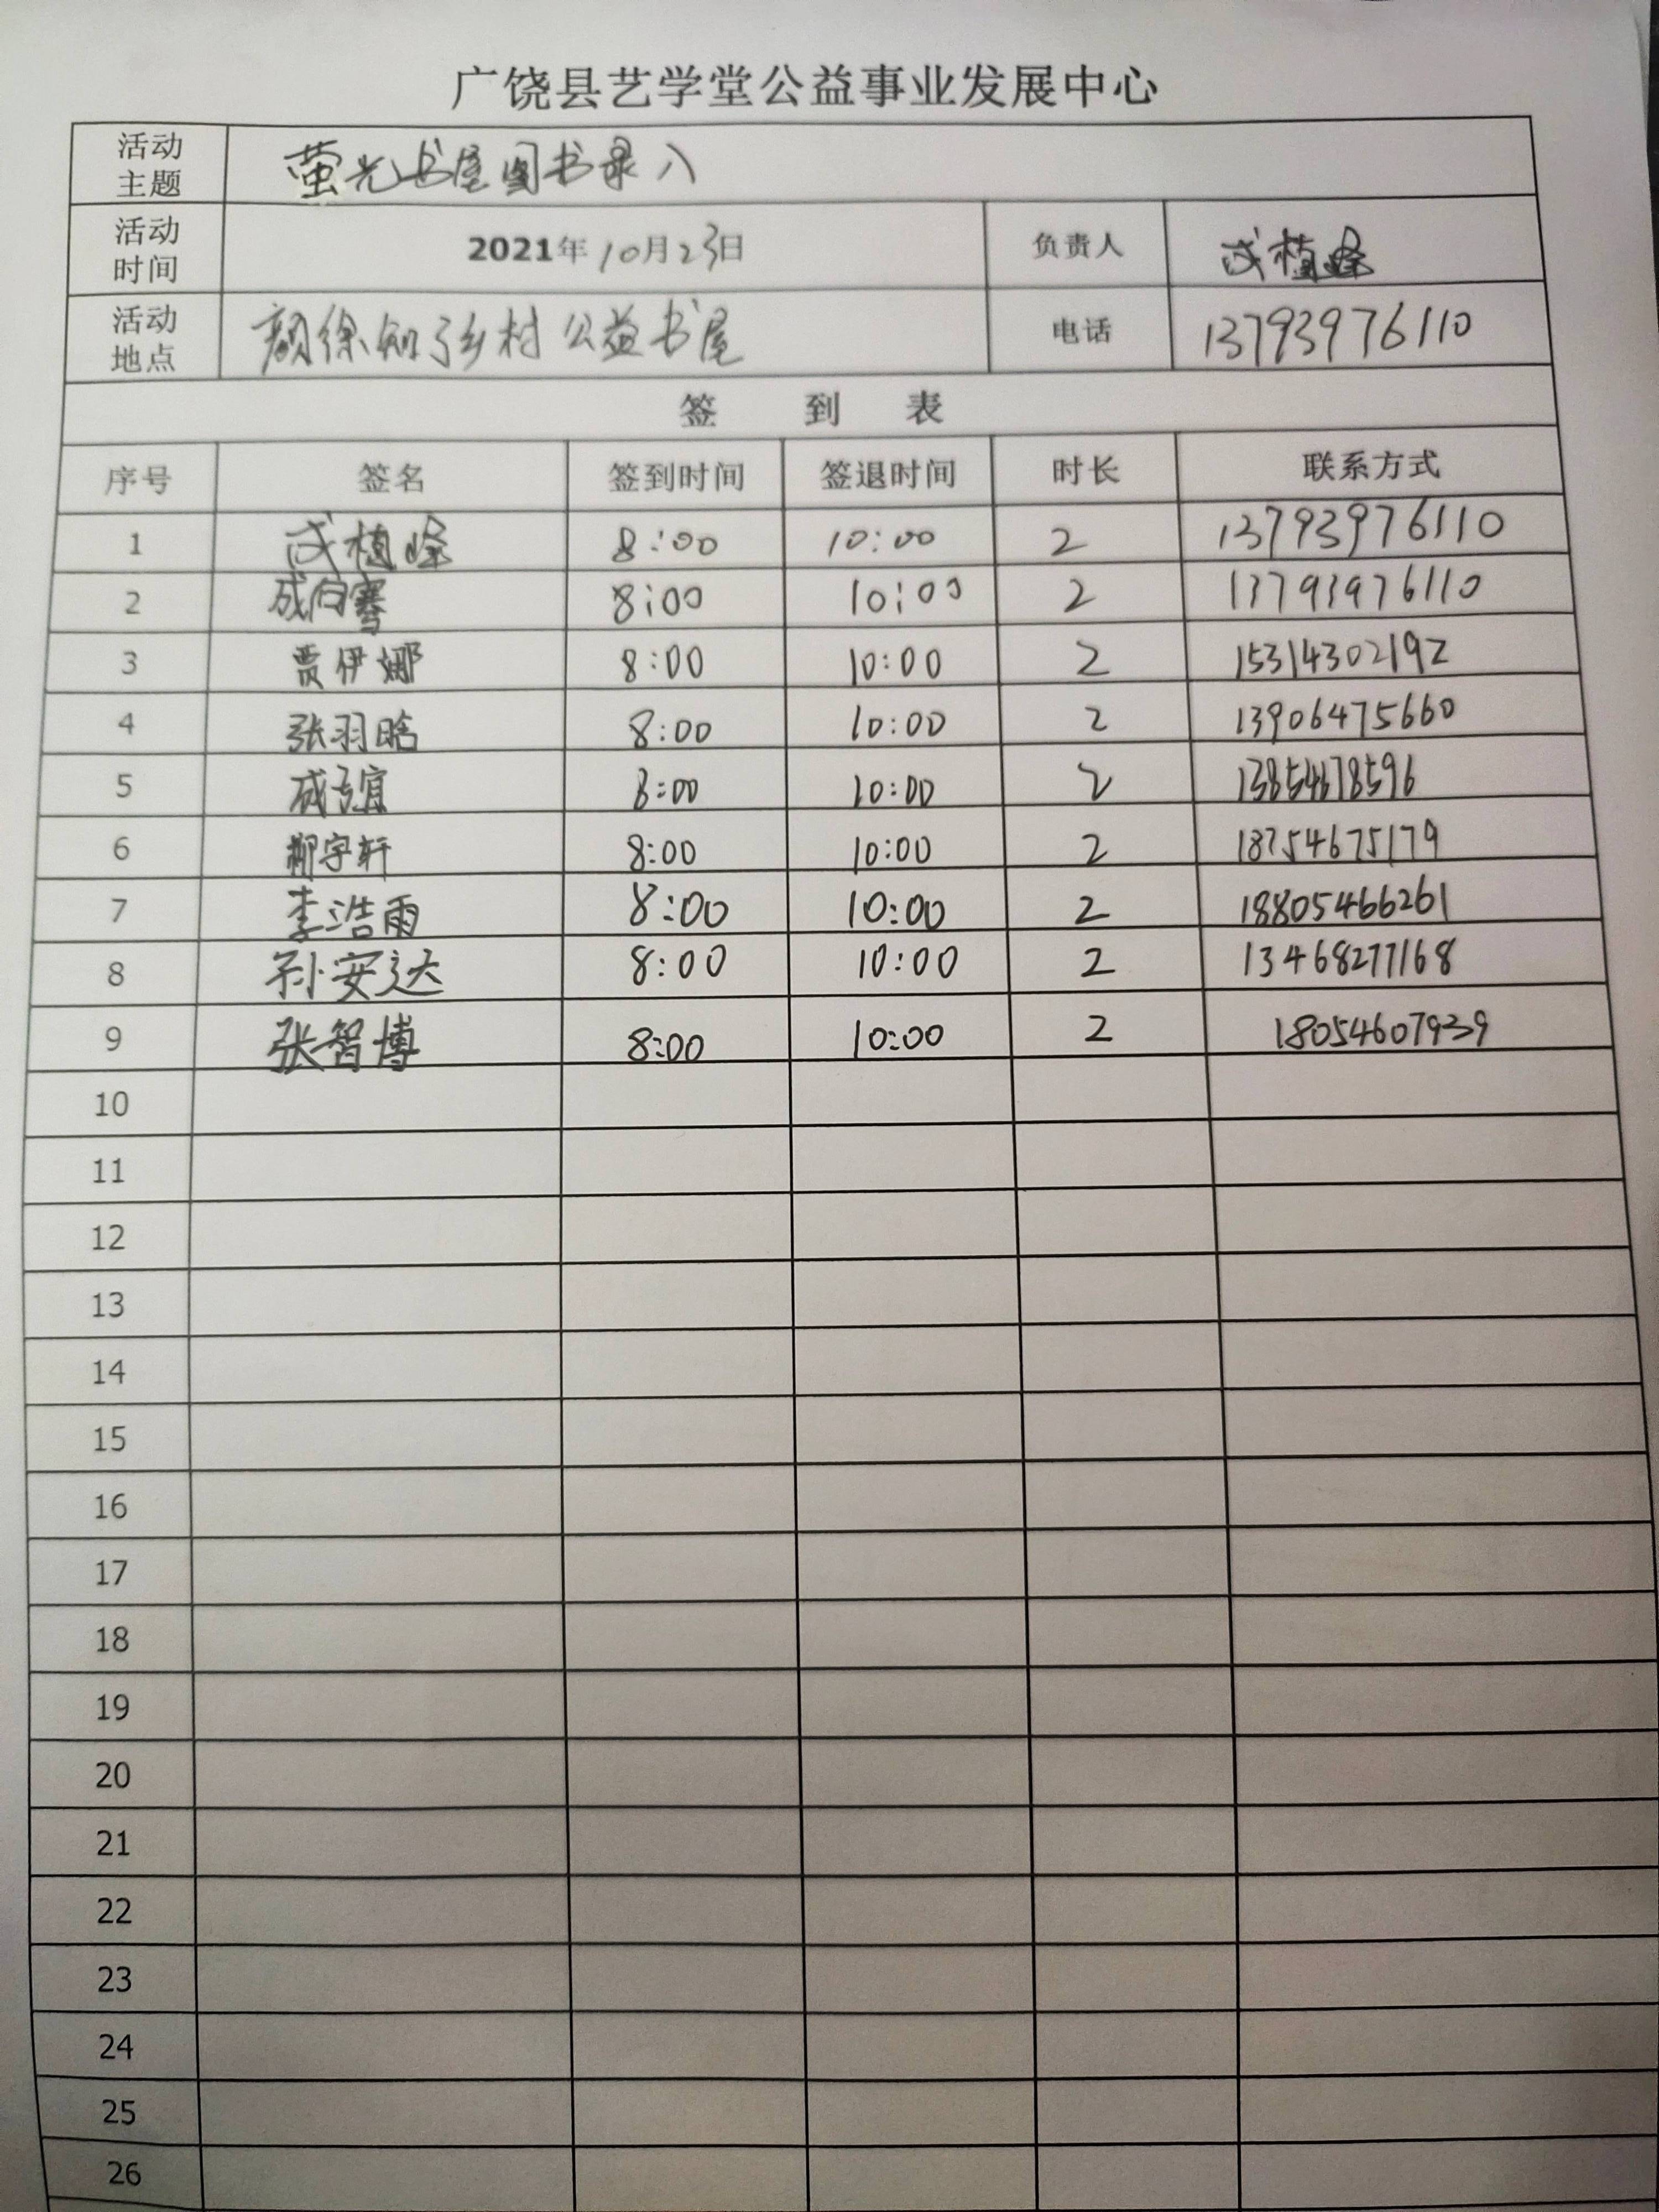 广饶县艺学堂公益事业发展中心
活动主题 萤光书屋图书录入
活动时间 2021年10月23日 负责人 成植峰
活动地点 颜徐知了乡村公益书屋 电话 13793976110
签 到 表
序号 签名 签到时间 签退时间 时长 联系方式
1 成植峰 8:00 10:00 2 13793976110
2 成向骞 8:00 10:00 2 13793976110
3 贾伊娜 8:00 10:00 2 15314302192
4 张羽晗 8:00 10:00 2 13906475660
5 8:00 10:00 2 13854678596
6 8:00 10:00 2 18754675179
7 李浩雨 8:00 10:00 2 18805466261
8 孙安达 8:00 10:00 2 13468277168
9 张智博 8:00 10:00 2 18054607939
10
11
12
13
14
15
16
17
18
19
20
21
22
23
24
25
26